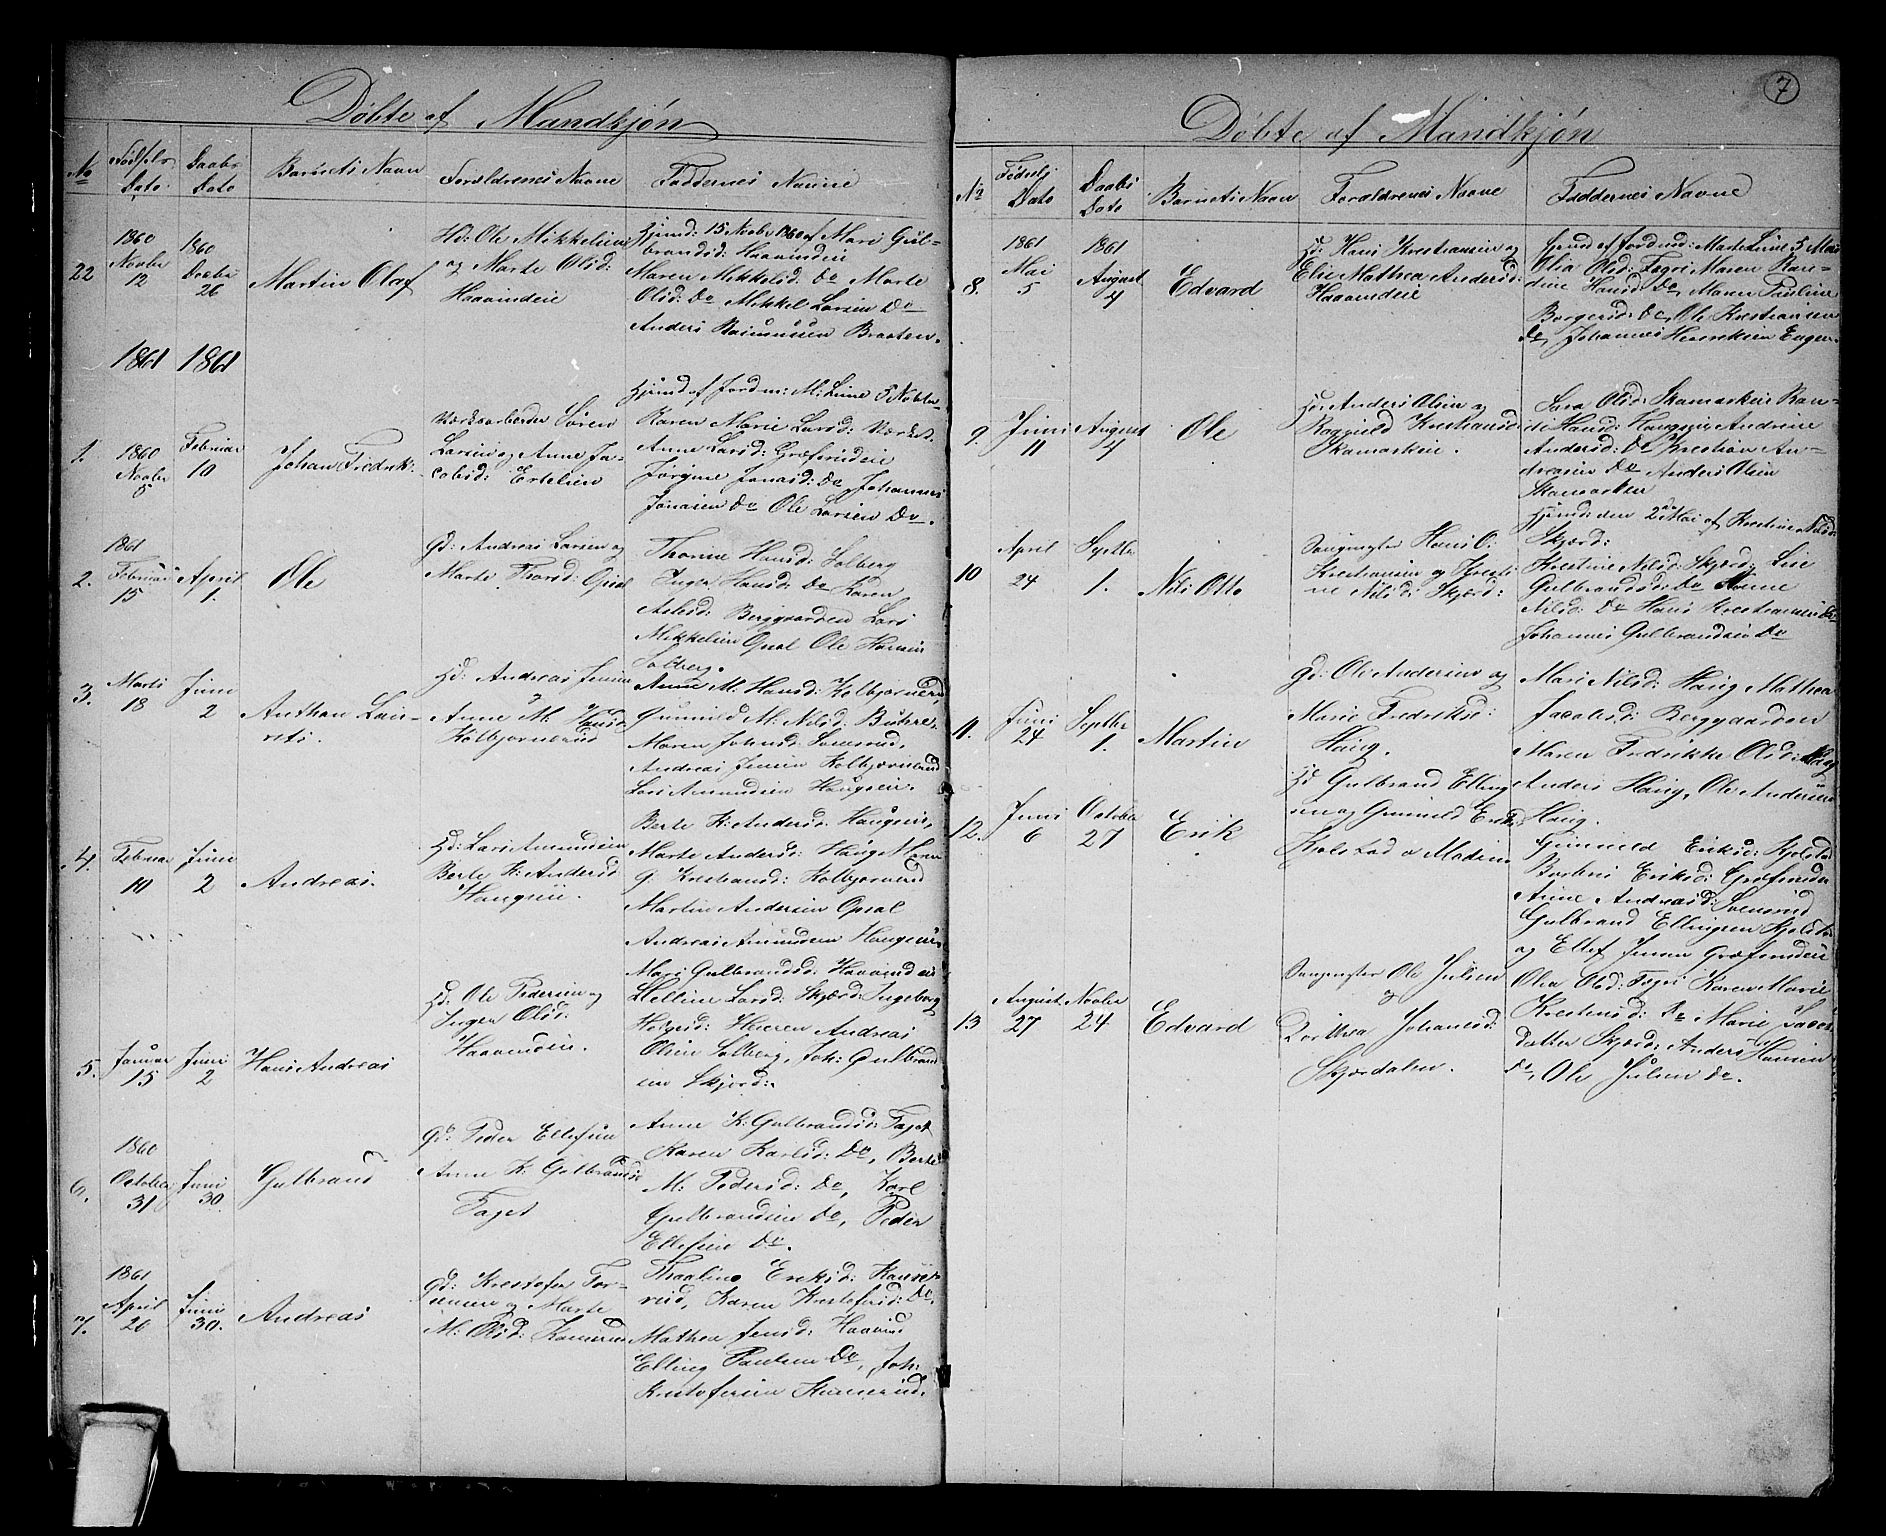 Döbte af Mandkjön
No Födsels Dato Daabs Dato Barnets Navn Forældrenes Navne Faddernes Navne
22 1860 Novbr 12 1860 Decbr 26 Martin Olaf
Hd: Ole Mikkelsen
og Marte Olsd:
Haavindeie
Hjemd: 15 Novbr 1860 af Mari Gul-
brandsd: Haavindeie
Maren Mikkelsd: Do Marte
Olsd: Do Mikkel Larsen Do
Anders Rasmussen Braaten.
1861 1861
1. 1860 Novbr 5 Februar 10 Johan Fredrik
Værksarbeider Sören
Larsen og Anne Ja-
cobsd: Ertelien
Hjemd af Jordm: M: Line 5 Novbr
Karen Marie Larsd: Værket
Anne Larsd: Græfsrudeie
Jörgine Jonasd: Do Johannes
Jonasen Do Ole Larsen Do.
2. 1861 Februar 15 April 1. Ole
Gd: Andreas Larsen og
Marte Thorsd: Opsal
Thorine Hansd: Solberg
Inger Hansd: Do Karen
Aslesd: Berggaarden Lars
Mikkelsen Opsal Ole Hansen
Solberg.
3. Marts 18 Juni 2 Anthon Lau-
rits.
Hd: Andreas Jensen
og
Anne M: Hansd
Kolbjörnsrud
Anne M: Hansd: Kolbjörnsrud,
Gunnild M: Nilsd: Buhre.
Maren Johnsd: Svensrud,
Andreas Jensen Kolbjörnsrud
Lars Amundsen Haugseie.
4. Februar 10 Juni 2 Andreas.
Hd: Lars Amundsen
Berte K: Andersd
Haugseie.
Berte K: Andersd: Haugseie,
Marte Andersd: Haug Maren
G: Krestiansd: Kolbjörnsrud
Martin Andersen Opsal
Andreas Amundsen Haugseie
5. Januar 15 Juni 2 Hans Andreas
Hd: Ole Pedersen og
Inger Olsd:
Haavindeie.
Mari Gulbrandsd: Haavindeie
Helline Larsd: Skjærd: Ingeborg
Andreas
Olsen Solberg, Joh: Gulbrand
sen Skjærd:
6. 1860 October 31 Juni 30. Gulbrand
Gd: Peder Ellefsen
Anne K: Gulbrandsd
Faget
Anne K: Gulbrandsd: Faget
Karen Karlsd: Do, Berte
M: Pedersd: Do, Karl
Gulbrandsen Do, Peder
Ellefsen Do.
7. 1861 April 20 Juni 30. Andreas
Gd: Krestofer Tor-
gensen og Marte
M: Olsd: Kamerud
Thaaline Eriksd: Kamer-
rud, Karen Krestofersd: Do,
Mathea Jensd: Haavind
Elling Paulsen Do, Joh:
Krestofersen Kamerud.
7
Döbte af Mandkjön
No Födsels Dato Daabs Dato Barnets Navn Forældrenes Navne Faddernes Navne
8. 1861 Mai 5 1861 August 4 Edvard
Hd Hans Krestiansen og
Elise Mathea Andersd:
Haavindeie
Hjemd af Jordmd: Marte Line 5 Mai
Olia Olsd: Fagri Maren Ran-
dine Hansd: Do, Maren Pauline
Borgersd: Do, Ole Krestiansen
Do, Johannes Henriksen Engen.
9. Juni 11 August 4 Ole
Anders Olsen og
Ragnild Krestiansd
Skamarkeie.
Sara Olsd: Skamarkeie Ran-
di Hansd: Haugseie Andrine
Andersd: Do Krestian An-
dreasen Do Anders Olsen
Skamarken
10 April 24 Septbr 1. Nils Otto
Hans O:
Krestiansen og Kresti
ne Nilsd: Skjærd:
Hjemd: den 2den Mai af Krestine Nilsd
Skjærd:
Krestine Nilsd: Skjærd: Lise
Gulbrandsd: Do Nonne
Nilsd: Do Hans Krestiansen Do
Johannes Gulbrandsen Do
11. Juni 24 Septbr 1. Martin
Gd: Ole Andersen og
Marie Fredriksd:
Haug.
Mari Nilsd: Haug Mathea
Jacobsd: Berggaarden
Maren Fredrikke Olsd: Haug
Anders Haug, Ole Andersen
Haug.
12. Juni 6 October 27 Erik
Hd Gulbrand Elling
sen og Gunnild Eriksd
Kjolstad v Modum
Gunnild Eriksd: Kjolstad
Eriksd: Græfsrudeie
Anne Andreasd: Svensrud
Gulbrand Ellingsen Kjolstad
og Ellef Jensen Græfsrudeie
13 August 27 Novbr 24 Edvard
Ole Julsen
og
Dorthea Johansd:
Skjærdalen.
Olia Olsd: Fagri Karen Marie
Krestensd: Do Marie
datter Skjærd: Anders Hansen
Do, Ole Julsen Do.